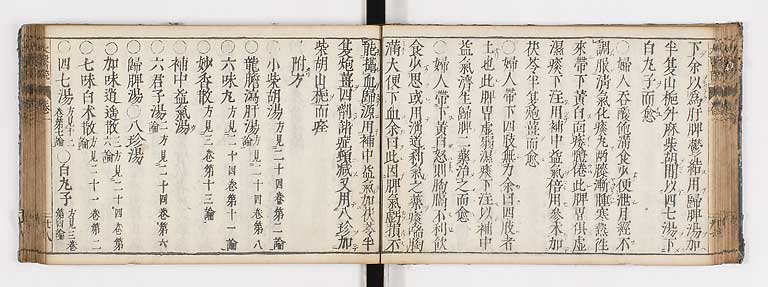 下余以為肝脾鬱結用歸脾湯加
半夏山梔升麻柴胡間以四七湯下
白丸子而愈
○婦人吞酸飽滿食少便泄月經不
調服清氣化痰丸兩膝漸腫寒熱往
來帶下黄白面痿體倦此脾胃俱虛
濕痰下注用補中益氣倍用參朮加
茯苓半夏炮薑而愈
○婦人帶下四肢無力余曰四肢者
土也此脾胃虛弱濕痰下注以補中
益氣濟生歸脾二藥治之而愈
○婦人帶下黄白怒則胸膈不利飲
食少思或用消導利氣之藥痰喘胸
滿大便下血余曰此因脾氣虧損不
能攝血歸源用補中益氣加茯苓半
夏炮薑四劑諸症頓減又用八珍加
柴胡山梔而痊
附方
○小柴胡湯方見二十四卷第二論
○龍膽瀉肝湯方見二十四卷第八
○六味丸論方見二十四卷第十一論
○妙香散方見三卷第十三論
○補中益氣湯
○六君子湯方見二十四卷第六
○歸脾湯論○八珍湯
○加味逍遙散方見二十四卷第
○七味白朮散論方見二十一卷第二
○四七湯方見十二卷第七論○白丸子方見三卷第四論